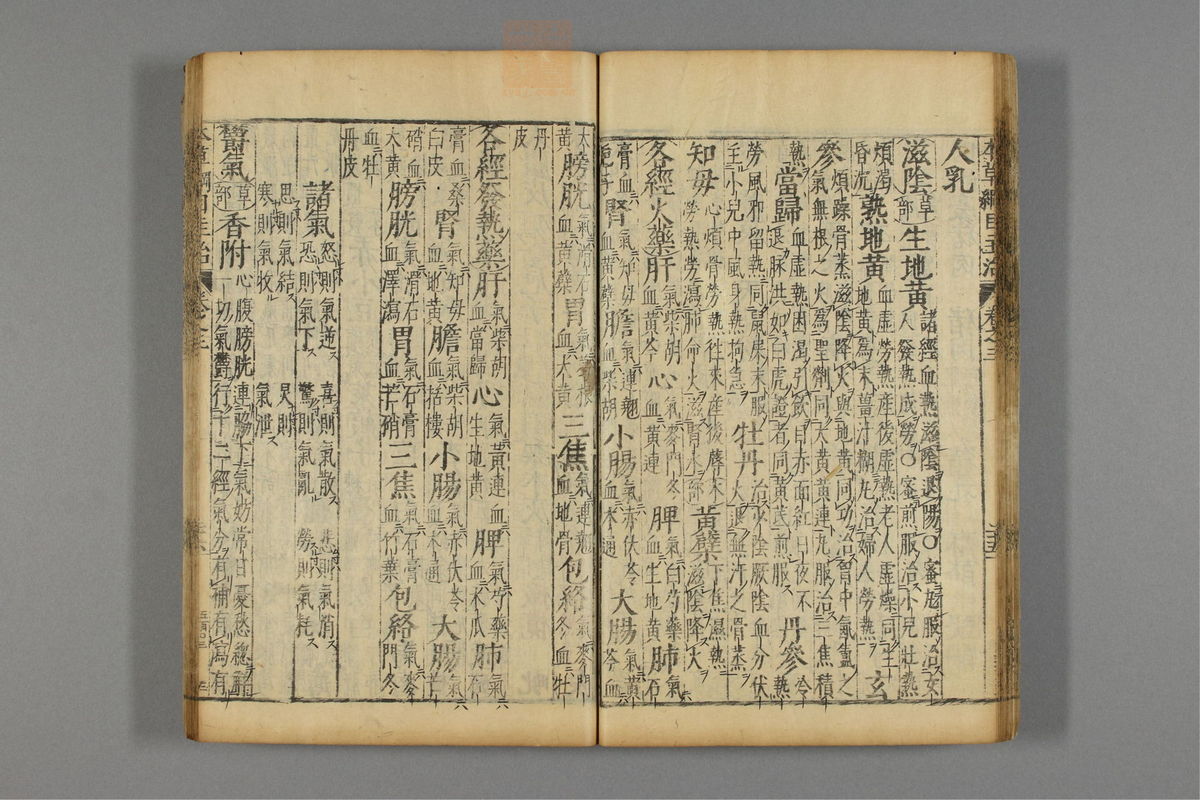 人乳
滋陰草部生地黃諸經血熱滋陰退陽○蜜丸服治女人發熱成勞○蜜煎服治小兒壯熱
煩渴昏沉熟地黃血虛勞熱產後虛熱老人虛燥同生地黃為末薑汁糊丸治婦人勞熱玄
參煩躁骨蒸滋陰降火與地黃同功治胷中氤氳之氣無根之火為聖劑同大黃黃連丸服治三焦積
熱當歸血虛熱困渴引飲目赤面紅日夜不退脉洪如白虎證者同黃芪煎服丹參冷熱
勞風邪留熱同鼠屎末服主小兒中風身熱拘急牡丹治少陰厥陰血分伏火退無汗之骨蒸
知毋心煩骨勞熱往來產後蓐勞熱勞瀉肺命火滋腎水木部黃檗下焦濕熱滋陰降火
各經火藥肝氣柴胡血黃芩心氣麥門冬血黃連脾氣白芍藥血生地黃肺氣石
膏血梔子腎氣知毋血黃檗膽氣連翹血柴胡小腸氣赤伏苓血木通大腸氣黃芩血
大黃膀胱氣滑石血黃檗胃氣葛根血大黃三焦氣連翹血地骨包絡氣麥門冬血牡
丹皮
各經發熱藥肝氣柴胡血當歸心氣黃連血生地黃脾氣芍藥血木瓜肺氣石
膏血桑白皮腎氣知毋血地黃膽氣柴胡血栝樓小腸氣赤伏苓血木通大腸氣芒
硝血大黃膀胱氣滑石血澤瀉胃氣石膏血芒硝三焦氣石膏血竹葉包絡氣麥門冬
血牡丹皮
諸氣怒則氣逆喜則氣散悲則氣消恐則氣下驚則氣亂勞則氣耗
思則氣結炅則氣泄寒則氣收
鬱氣草部香附心腹膀胱連脇下氣妨常日憂愁總解一切氣鬱行十二經氣分有補有瀉有
本草綱目主治 卷之三